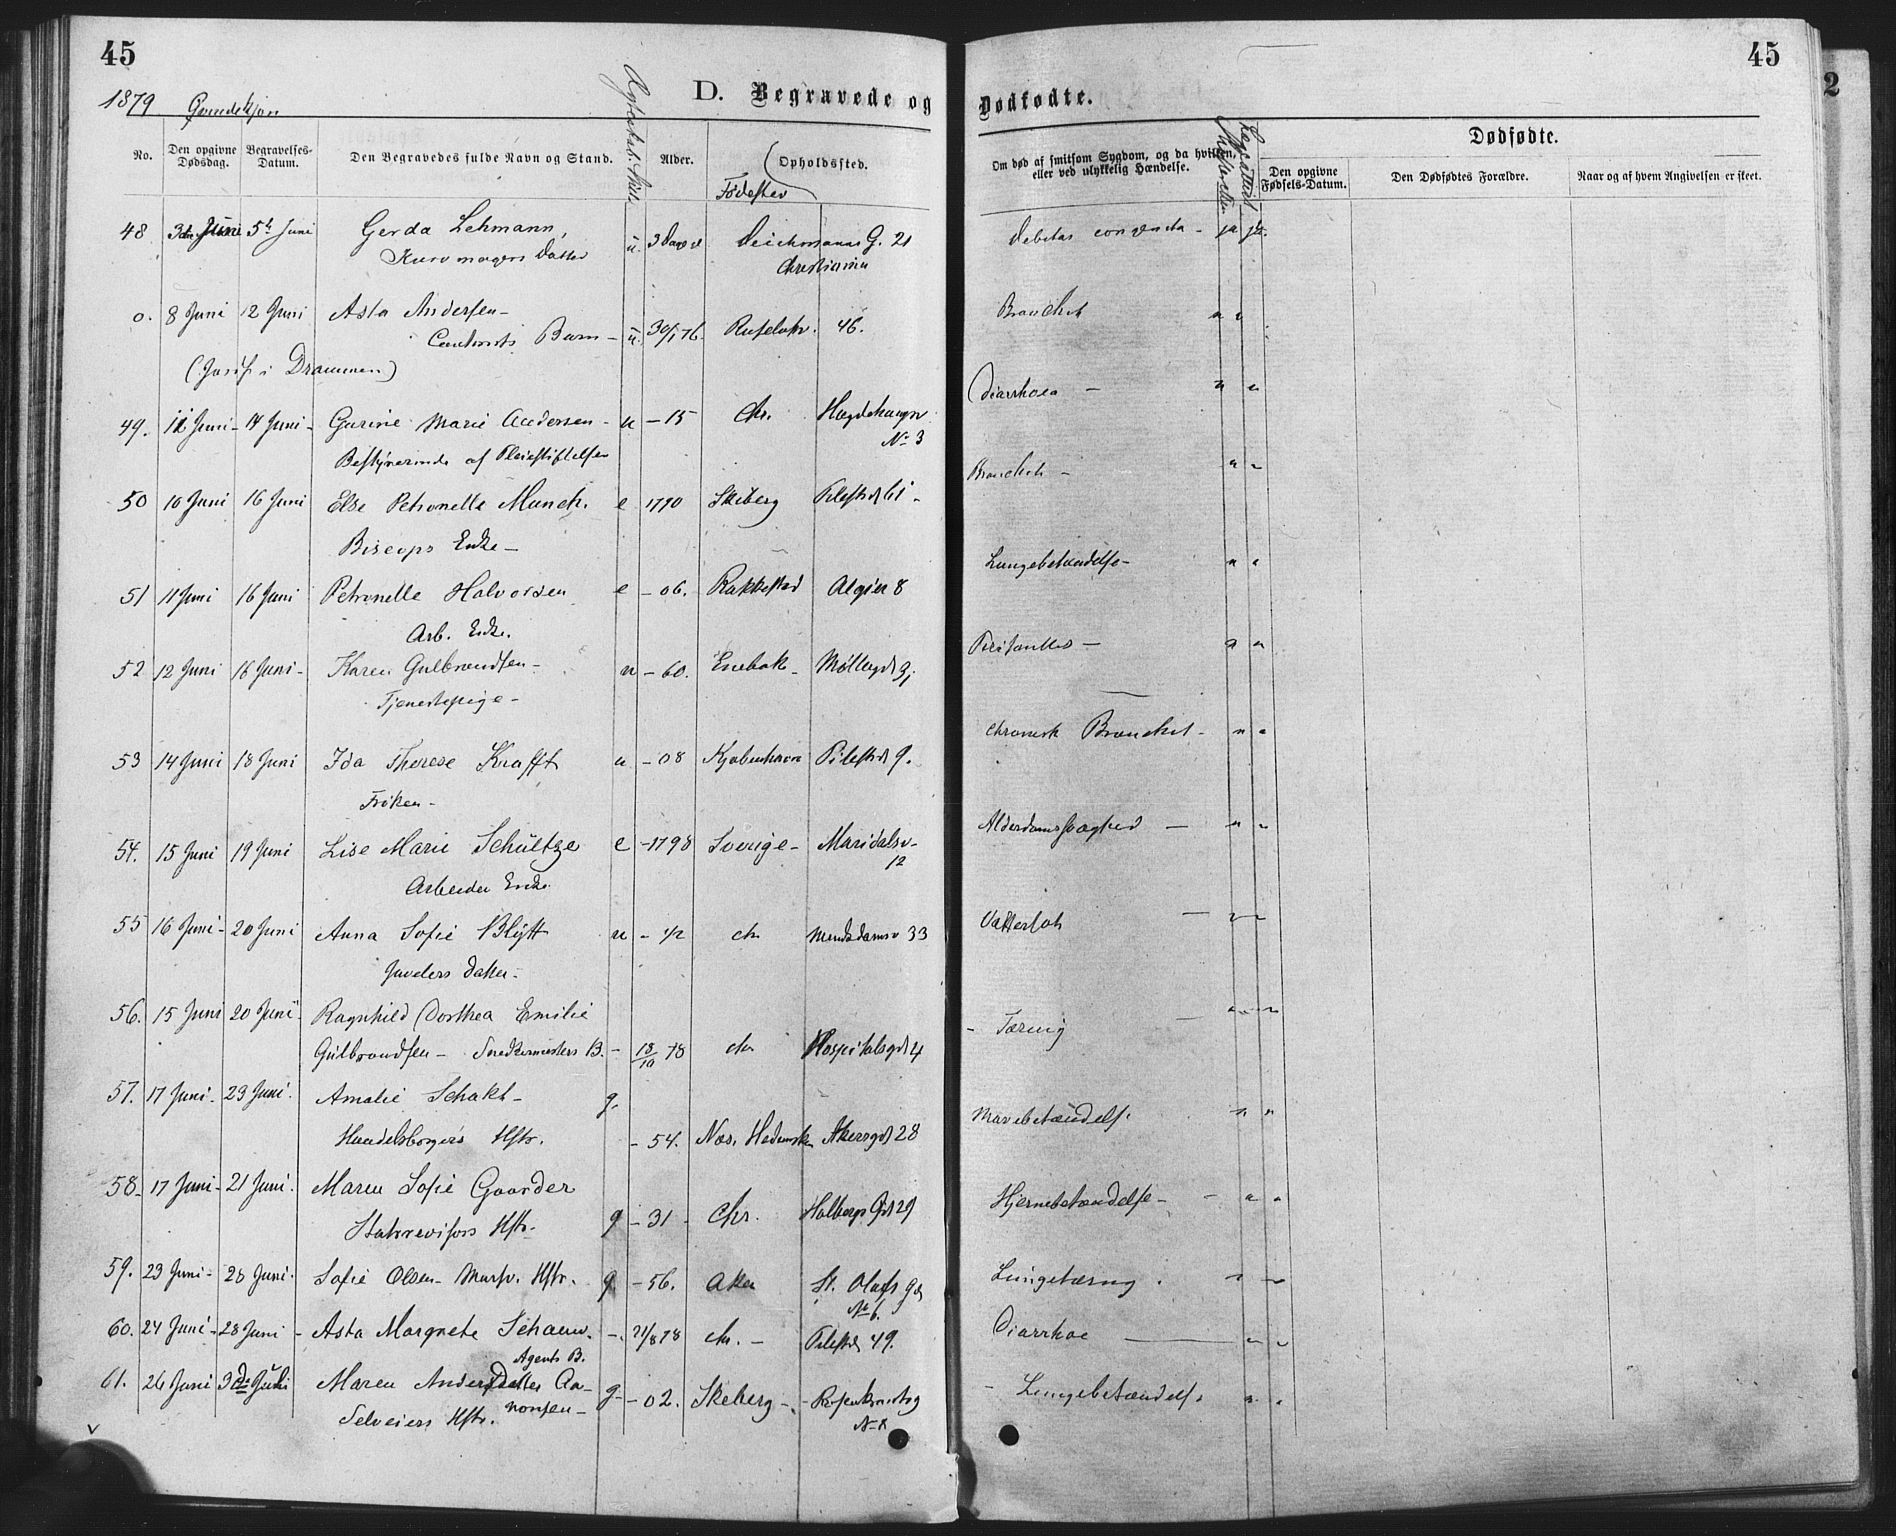 45
1879 Qvindekjøn
D. Begravede og
No.
Den opgivne Dødsdag.
Begravelses-Datum.
Den Begravedes fulde Navn og Stand.
Alder.
Fødested
Opholdssted.
48 3die Juni 5te Juni Gerda Lehmann, u. 3 Dage Deichmanns G. 21
Kurvmagers Datter Christiania
0. 8 Juni 12 Juni Asta Andersen - u. 30/1 76. 46.
Barn -
(Jords. i Drammen)
49. 11 Juni - 14 Juni - Gurine Marie Andersen - u - 15 Chr. Hægdehaugsv
No 3
Bestyrerinde af Pleiestiftelsen
50 10 Juni 16 Juni Else Petronelle Munch. e 1790 Skiberg Pilestr. 61 -
Biscops Enke -
51 11 Juni 16 Juni Petronelle Halvorsen e - 06. Rakkestad Algier 8
Arb. Enke.
52 12 Juni 16 Juni - Karen Gulbrandsen - u - 60. Enebak - Møllegd 3
Tjenestepige -
53 14 Juni 18 Juni Ida Therese Krafft u - 08 Kjøbenhavn Pilestr 9.
Frøken -
54. 15 Juni 19 Juni Lise Marie Schültze e - 1798 Sverige - Maridalsv -
12
Arbeider Enke
55 16 Juni - 20 Juni Anna Sofie Blÿtt u - 1/2 chr 33
Juvelers Datter -
56. 15 Juni 20 Juni Ragnhild Dorthea Emilie
Gulbrandsen - Snedkermesters B. - 18/10 78 chr Hospitalsgd 4
57. 17 Juni - 23 Juni. Amalie Schakt - g.
Handelsborgers Hstr. - 54. Næs. Hedemarken Akersgd 28
58 - 17 Juni - 21 Juni. Maren Sofie Gaarder
Statsrevisors Hstr. g - 31 - Chr. Holbergs Gd 29
59. 23 Juni - 28 Juni. Sofie Olsen - Hstr. g - 56. Aker St. Olafs Gd
No 6.
60. 24 Juni - 28 Juni - Asta Margrete Schauw. - 21/8 78 chr. - Pilestr 49.
Agents B.
61. 26 Juni 3die Juli Maren Andersdatter Aa- g - 02. Skeberg - Rosenkrantzg
ronsen -
Selveiers Hstr.
45
Dødfødte.
Om død af smitsom Sygdom, og da hvilken, eller ved ulykkelig Hændelse.
Dødfødte.
Den opgivne Fødsels-Datum.
Den Dødfødtes Forældre.
Naar og af hvem Angivelsen er skeet.
Debitas congenita - ja ja.
Bronchit
Diarrhoea - " "
Bronchit - " "
Lungebetændelse - " "
Peritonites - " "
Chronisk Bronchit - " "
Alderdomssvaghed - " "
Vattersot - " "
- Tæring - " "
Mavebetændelse " "
Hjernebetændelse - " "
Lungetæring . " "
Diarrhoe " "
- Lungebetændelse " "
2